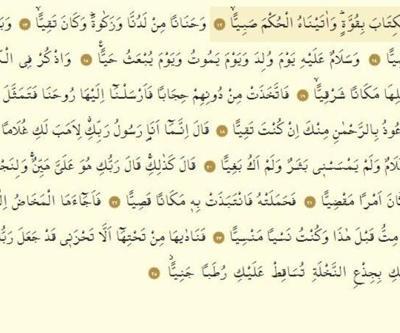 كِتَابَ بِقُوَّةٍۜ وَاٰتَيْنَاهُ الْحُكْمَ صَبِيًّاۙ ﴿١٢﴾ وَحَنَانًا مِنْ لَدُنَّا وَزَكٰوةًۜ وَكَانَ تَقِيًّاۙ ﴿١٣﴾ وَبَ
يًّا ﴿١٤﴾ وَسَلَامٌ عَلَيْهِ يَوْمَ وُلِدَ وَيَوْمَ يَمُوتُ وَيَوْمَ يُبْعَثُ حَيًّا۟ ﴿١٥﴾ وَاذْكُرْ فِي الْكِ
لِهَا مَكَانًا شَرْقِيًّاۙ ﴿١٦﴾ فَاتَّخَذَتْ مِنْ دُونِهِمْ حِجَابًا فَاَرْسَلْنَٓا اِلَيْهَا رُوحَنَا فَتَمَثَّلَ
عُوذُ بِالرَّحْمٰنِ مِنْكَ اِنْ كُنْتَ تَقِيًّا ﴿١٨﴾ قَالَ اِنَّمَٓا اَنَا۬ رَسُولُ رَبِّكِۗ لِاَهَبَ لَكِ غُلَامًا
لَامٌ وَلَمْ يَمْسَسْن۪ي بَشَرٌ وَلَمْ اَكُ بَغِيًّا ﴿٢٠﴾ قَالَ كَذٰلِكِۚ قَالَ رَبُّكِ هُوَ عَلَيَّ هَيِّنٌۚ وَلِنَجْ
كَانَ اَمْرًا مَقْضِيًّا ﴿٢١﴾ فَحَمَلَتْهُ فَانْتَبَذَتْ بِه۪ مَكَانًا قَصِيًّا ﴿٢٢﴾ فَاَجَٓاءَهَا الْمَخَاضُ اِلٰ
مِتُّ قَبْلَ هٰذَا وَكُنْتُ نَسْيًا مَنْسِيًّا ﴿٢٣﴾ فَنَادٰيهَا مِنْ تَحْتِهَٓا اَلَّا تَحْزَن۪ي قَدْ جَعَلَ رَبُّ
كِ بِجِذْعِ النَّخْلَةِ تُسَاقِطْ عَلَيْكِ رُطَبًا جَنِيًّاۘ ﴿٢٥﴾